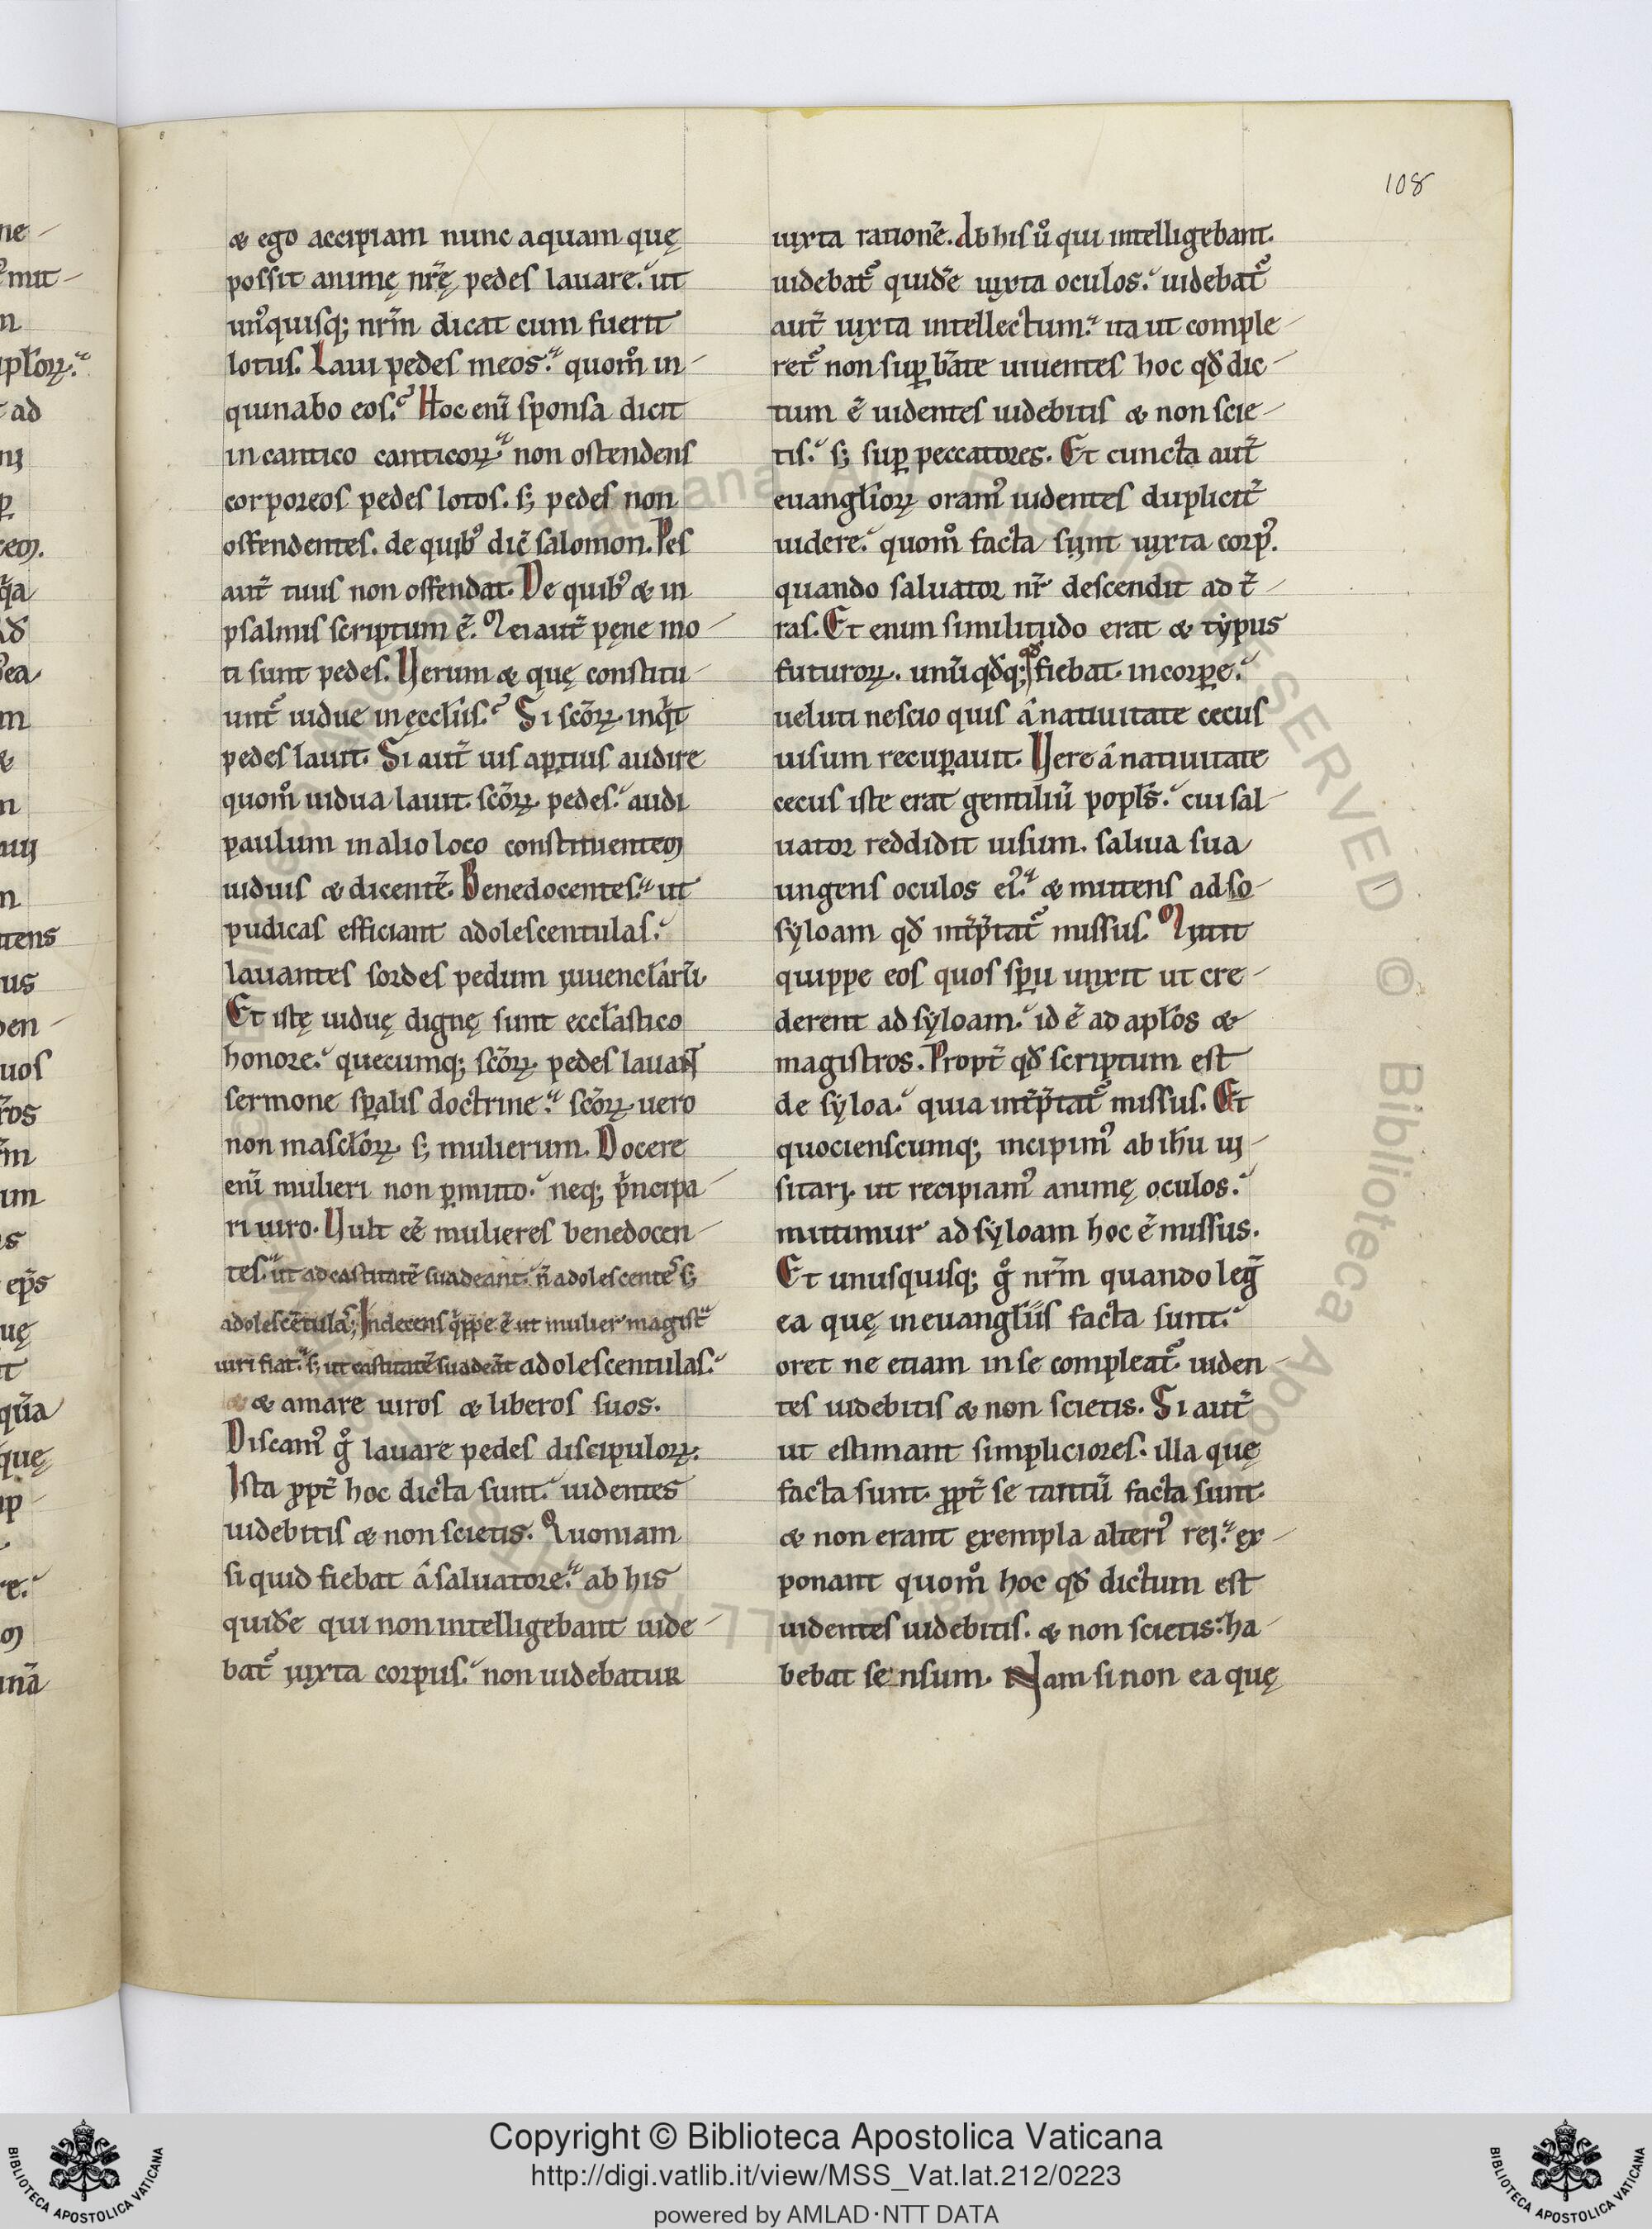 108
& ego accipiam nunc aquam quę
possit animę nr̃ę pedes lauare. ut
unꝰquisq; nr̃m dicat cum fuerit
lotus. Laui pedes meos. quom̊ in-
quinabo eos. Hoc eni̅ sponsa dicit
in cantico canticoꝝ non ostendens
corporeos pedes lotos. s; pedes non
offendentes. de quibꝰ dic̃ salomon. Pes
aut̃ tuus non offendat. De quibꝰ & in
psalmis scriptum ẽ. Mei aut̃ pęne mo-
ti sunt pedes. Verum & quę constitu-
unt᷑ uidue in ęccl̃iis. Si sc̃oꝝ inq̇t
pedes lauit. Si aut̃ uis aꝑtius audire
quom̊ uidua lauit sc̃oꝝ pedes. audi
paulum in alio loco constituentem
uiduis & dicentẽ. Benedocentes. ut
pudicas efficiant adolescentulas.
lauantes sordes pedum iuuencl̃arũ.
Et istę uiduę dignę sunt eccl̃astico
honore. quecumq; sc̃oꝝ pedes lauant
sermone sp̃alis doctrine. sc̃oꝝ uero
non mascl̃oꝝ s; mulierum. Docere
eni̅ mulieri non ꝑmitto. neq; p̃ncipa-
ri uiro. Vult eẽ mulieres benedocen-
tes. ut ad castitatẽ suadeant. ñ adolescentes s;
adolescẽtulas; Indecens q̇ppe ẽ ut mulier magist̃
uiri fiat. s; ut castitatẽ suadeãt adolescentulas.
& amare uiros & liberos suos.
Discamꝰ g̊ lauare pedes discipuloꝝ.
Ista ꝓpt̃ hoc dicta sunt. uidentes
uidebitis & non scietis. Quoniam
si quid fiebat á saluatore. ab his
quidẽ qui non intelligebant uide-
bat᷑ iuxta corpus. non uidebatur
iuxta rationẽ. Ab his ů qui intelligebant.
uidebat᷑ quidẽ iuxta oculos. uidebat᷑
aut̃ iuxta intellectum. ita ut comple-
ret᷑ non suꝑ beate uiuentes hoc qđ dic-
tum ẽ uidentes uidebitis & non scie-
tis. s; suꝑ peccatores. Et cuncta aut̃
euangl̃ioꝝ oramꝰ uidentes duplicit̃
uidere. quom̊ facta sunt iuxta corpꝰ.
quando saluator nr̃ descendit ad t̃-
ras. Et enim similitudo erat & typus
futuroꝝ. unũ qđq; qđ fiebat in corꝑe.
ueluti nescio quis á natiuitate cecus
uisum recuꝑauit. Vere á natiuitate
cecus iste erat gentiliũ popl̃s. cui sal-
uator reddidit uisum. saliua sua
ungens oculos eiꝰ. & mittens ad so-
syloam qđ int̃p̃tat᷑ missus. Misit
quippe eos quos sp̃u unxit ut cre-
derent ad syloam. id ẽ ad apl̃os &
magistros. Propt̃ qđ scriptum est
de syloa. quia int̃p̃tat᷑ missus. Et
quocienscumq; incipimꝰ ab ih̃u ui-
sitari. ut recipiamꝰ animę oculos.
mittimur ad syloam hoc ẽ missus.
Et unusquisq; g̊ nr̃m quando leg̃
ea quę in euangl̃iis facta sunt.
oret ne etiam in se compleat᷑. uiden-
tes uidebitis & non scietis. Si aut̃
ut estimant simpliciores. illa quę
facta sunt ꝓpt̃ se tantũ facta sunt
& non erant exempla alteriꝰ rei. ex-
ponant quom̊ hoc qđ dictum est
uidentes uidebitis. & non scietis. ha-
bebat sensum. Nam si non ea quę
Copyright © Biblioteca Apostolica Vaticana
http://digi.vatlib.it/view/MSS_Vat.lat.212/0223
powered by AMLAD·NTT DATA